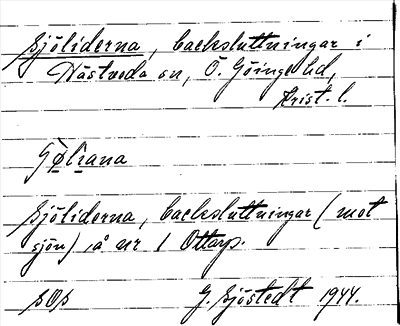 Sjöliderna, backsluttningar i
Nästveda sn, Ö. Göinge hd,
Krist. l.
Sjöliderna, backsluttningar (mot
sjön) å nr 1 Ottarp.
SOS G. Sjöstedt 1944.